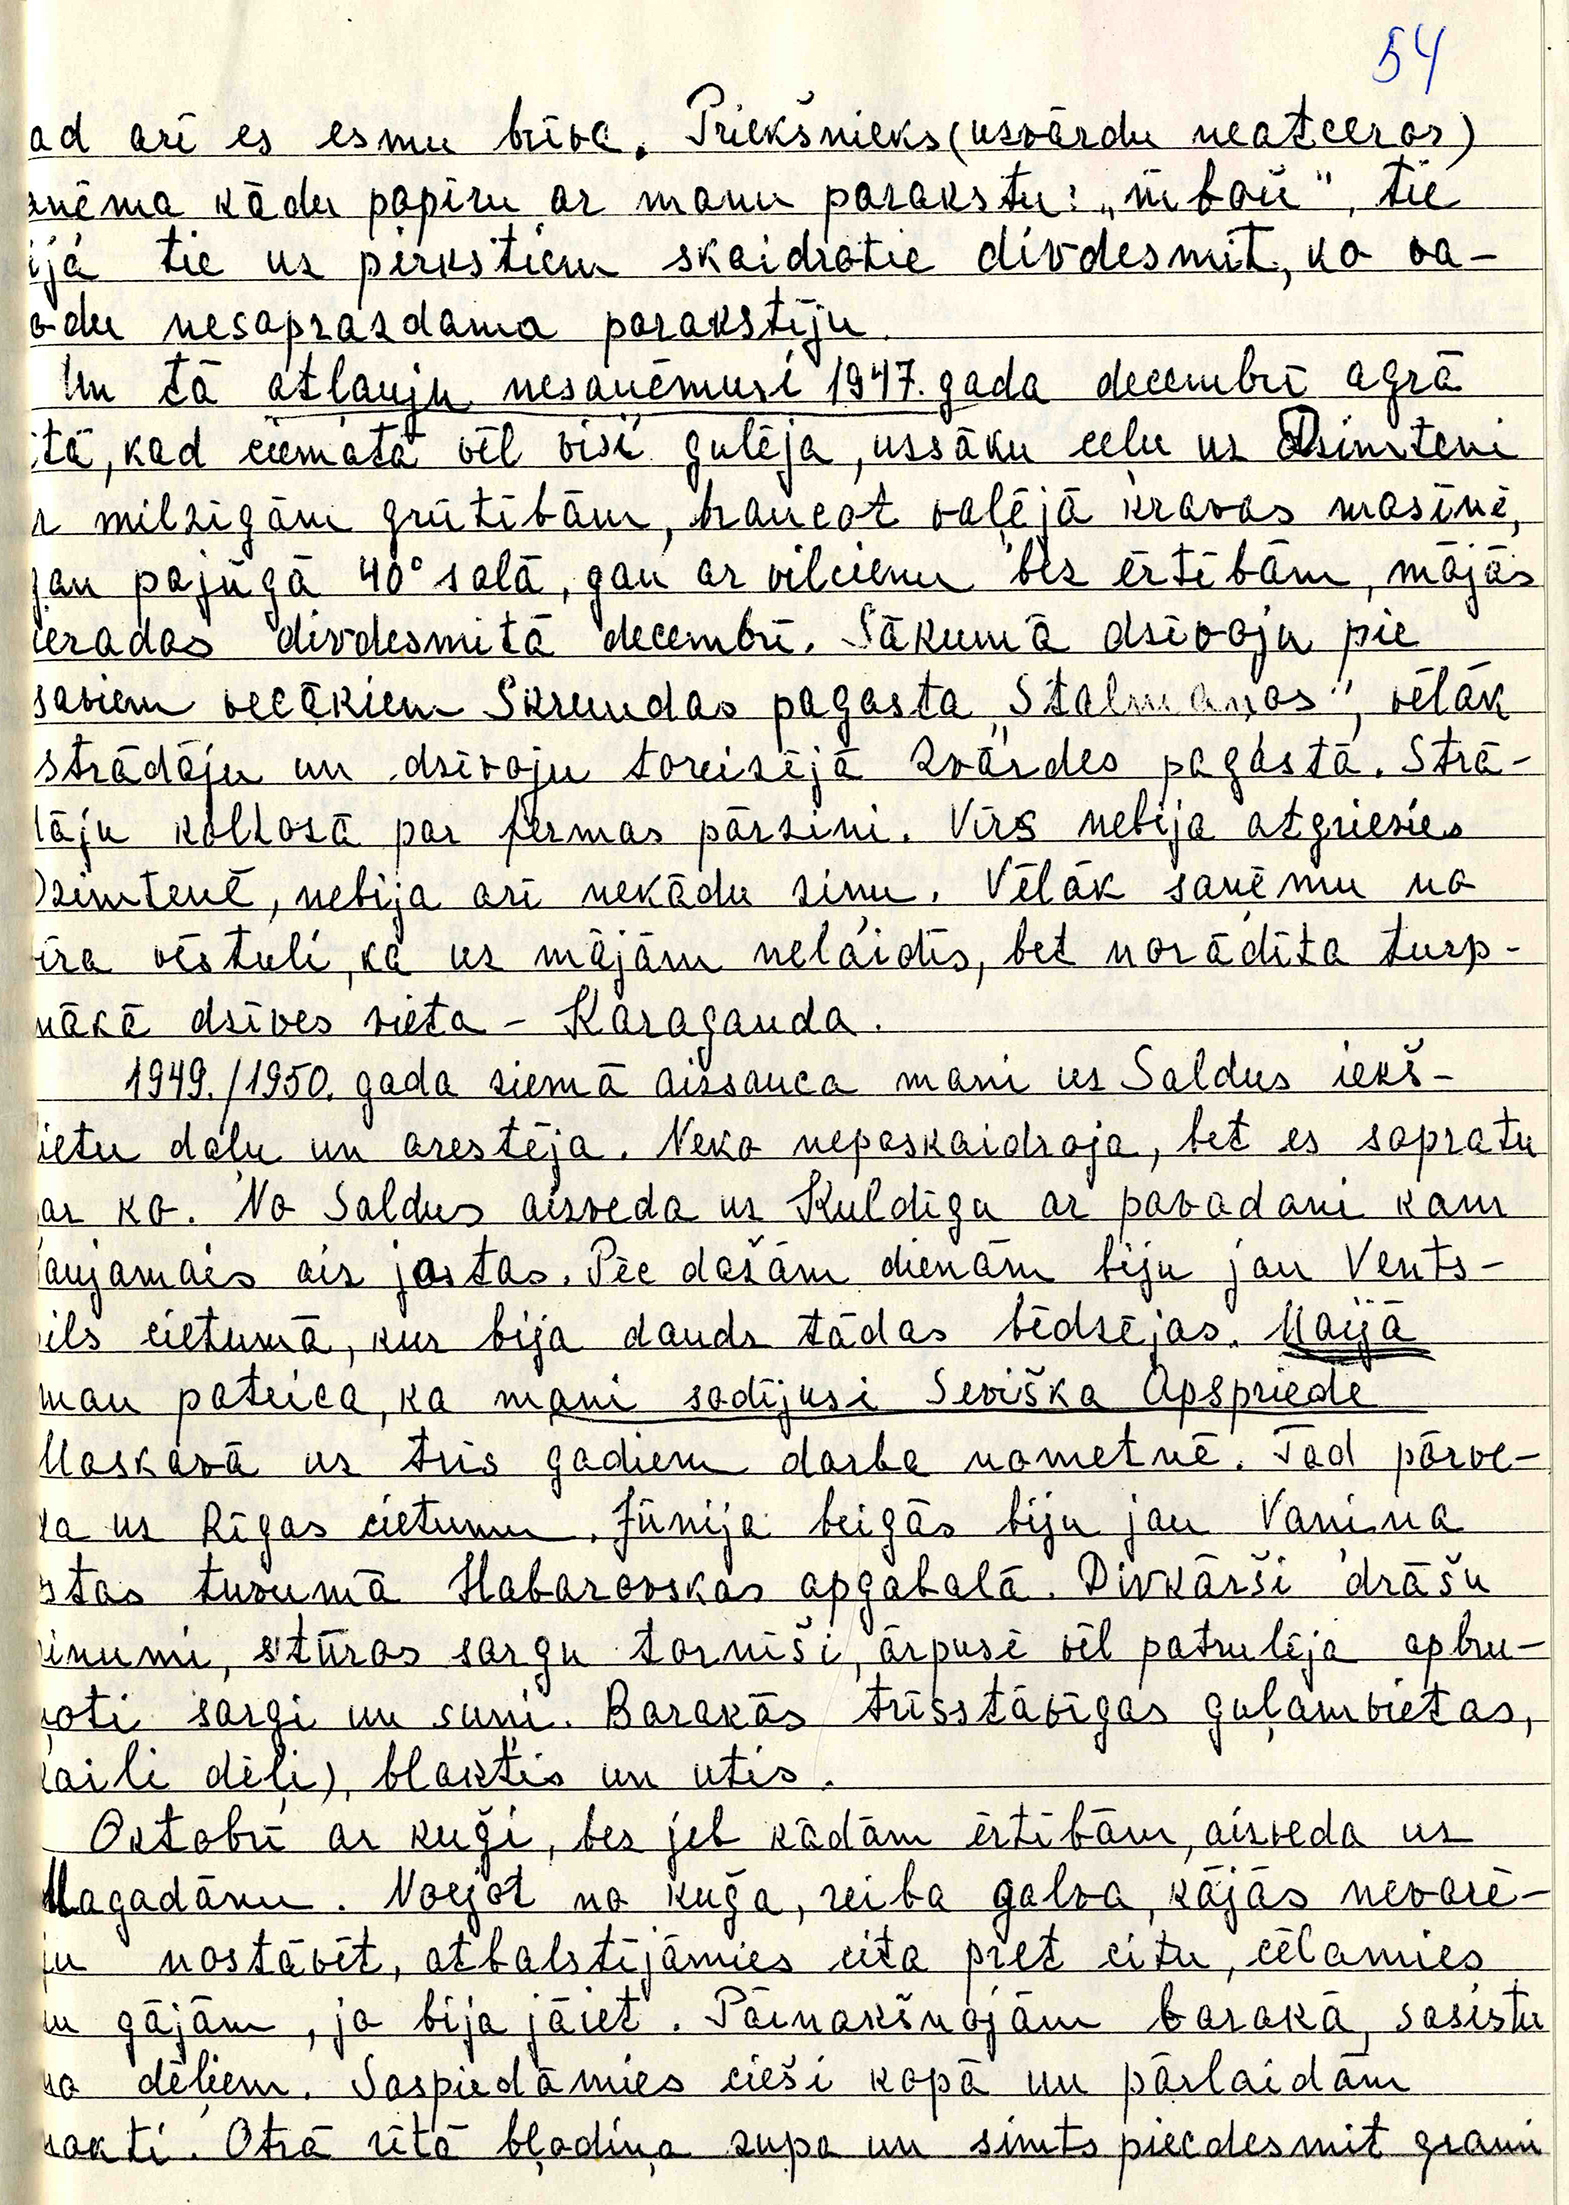 54
ad arī es esmu brīva. Priekšnieks (uzvārdu neatceros)
ņēma kādu papīru ar manu parakstu: „ņiboļi", tie
ijā tie uz pirkstiem skaidrotie divdesmit, ko va-
odu nesaprazdama parakstīju.
Un tā atļauju nesaņēmusi 1947. gada decembrī agrā
ītā, kad ciematā vēl visi gulēja, uzsāku ceļu uz Dzimteni
r milzīgām grūtībām, braucot vaļējā kravas mašīnē,
gan pajūgā 40° salā, gan ar vilcienu bez ērtībām, mājās
ierados divdesmitā decembrī. Sākumā dzīvoju pie
saviem vecākiem Skrundas pagasta „Stalmaņos", vēlāk
strādāju un dzīvoju toreizējā Zvārdes pagastā. Strā-
dāju kolhozā par fermas pārzini. Vīrs nebija atgriezies
Dzimtenē, nebija arī nekādu ziņu. Vēlāk saņēmu no
vīra vēstuli, ka uz mājām nelaidīs, bet norādīta turp-
mākā dzīves vieta - Karaganda.
1949./1950. gada ziemā aizsauca mani uz Saldus iekš-
lietu daļu un arestēja. Neko nepaskaidroja, bet es sapratu
par ko. No Saldus aizveda uz Kuldīgu ar pavadoni kam
šaujamais aiz jostas. Pēc dažām dienām biju jau Vents-
pils cietumā, kur bija daudz tādas bēdzējas. Maijā
man pateica, ka mani sodījusi Sevišķa Apspriede
Maskavā uz trīs gadiem darba nometnē. Tad pārve-
da uz Rīgas cietumu. Jūnija beigās biju jau Vanina
ostas tuvumā Habarovskas apgabalā. Divkārši drāšu
pinumi, stūros sargu tornīši, ārpusē vēl patrulēja apbru-
ņoti sargi un suņi. Barakās trīsstāvīgas guļamvietas,
kaili dēļi), blaktis un utis.
Oktobrī ar kuģi, bez jeb kādām ērtībām, aizveda uz
Magadānu. Noejot no kuģa, reiba galva, kājās nevarē-
ju nostāvēt, atbalstījāmies cita pret citu, cēlāmies
un gājām, jo bija jāiet. Pārnakšņojām barakā, sasistu
no dēļiem. Saspiedāmies cieši kopā un pārlaidām
nakti. Otrā rītā bļodiņa zupa un simts piecdesmit grami